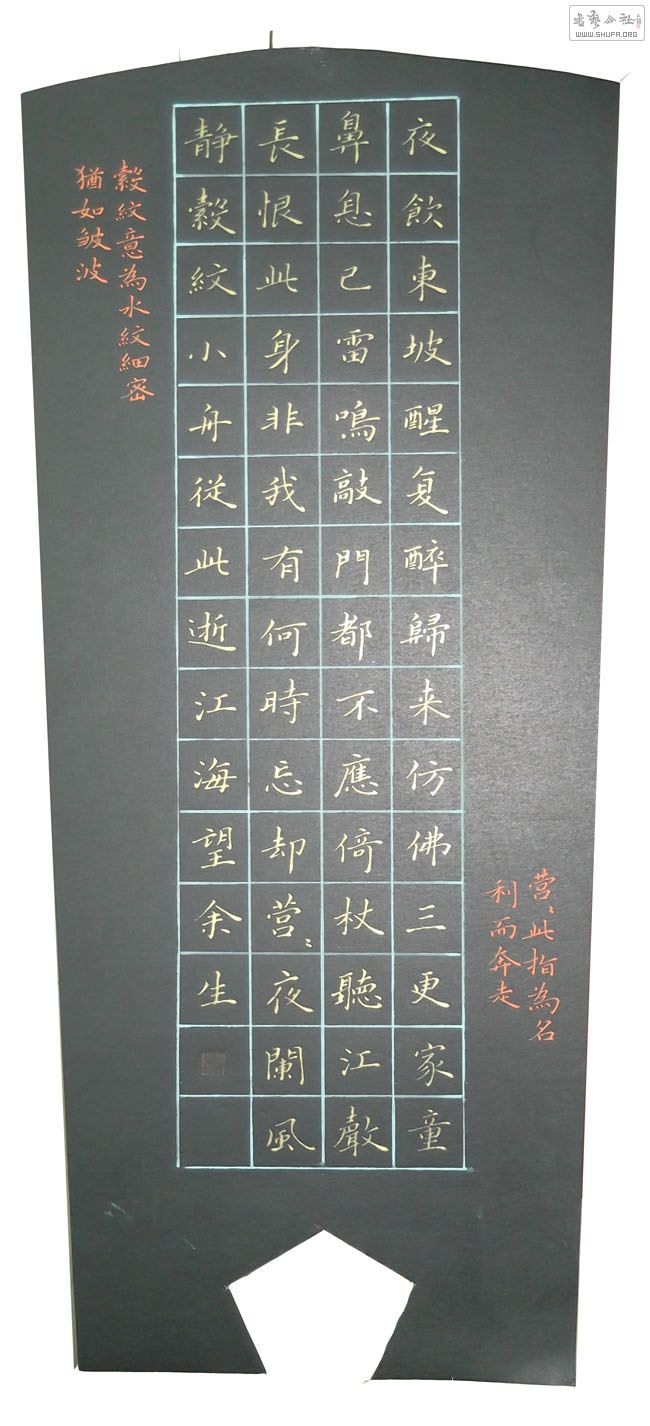 夜飲東坡醒复醉歸来仿佛三更家童
鼻息已雷鳴敲門都不應倚杖聽江聲
長恨此身非我有何時忘却营〻夜闌風
靜縠紋小舟從此逝江海望余生
营〻此指為名
利而奔走
縠紋意為水紋細密
猶如皱波
WWW.SHUFA.ORG